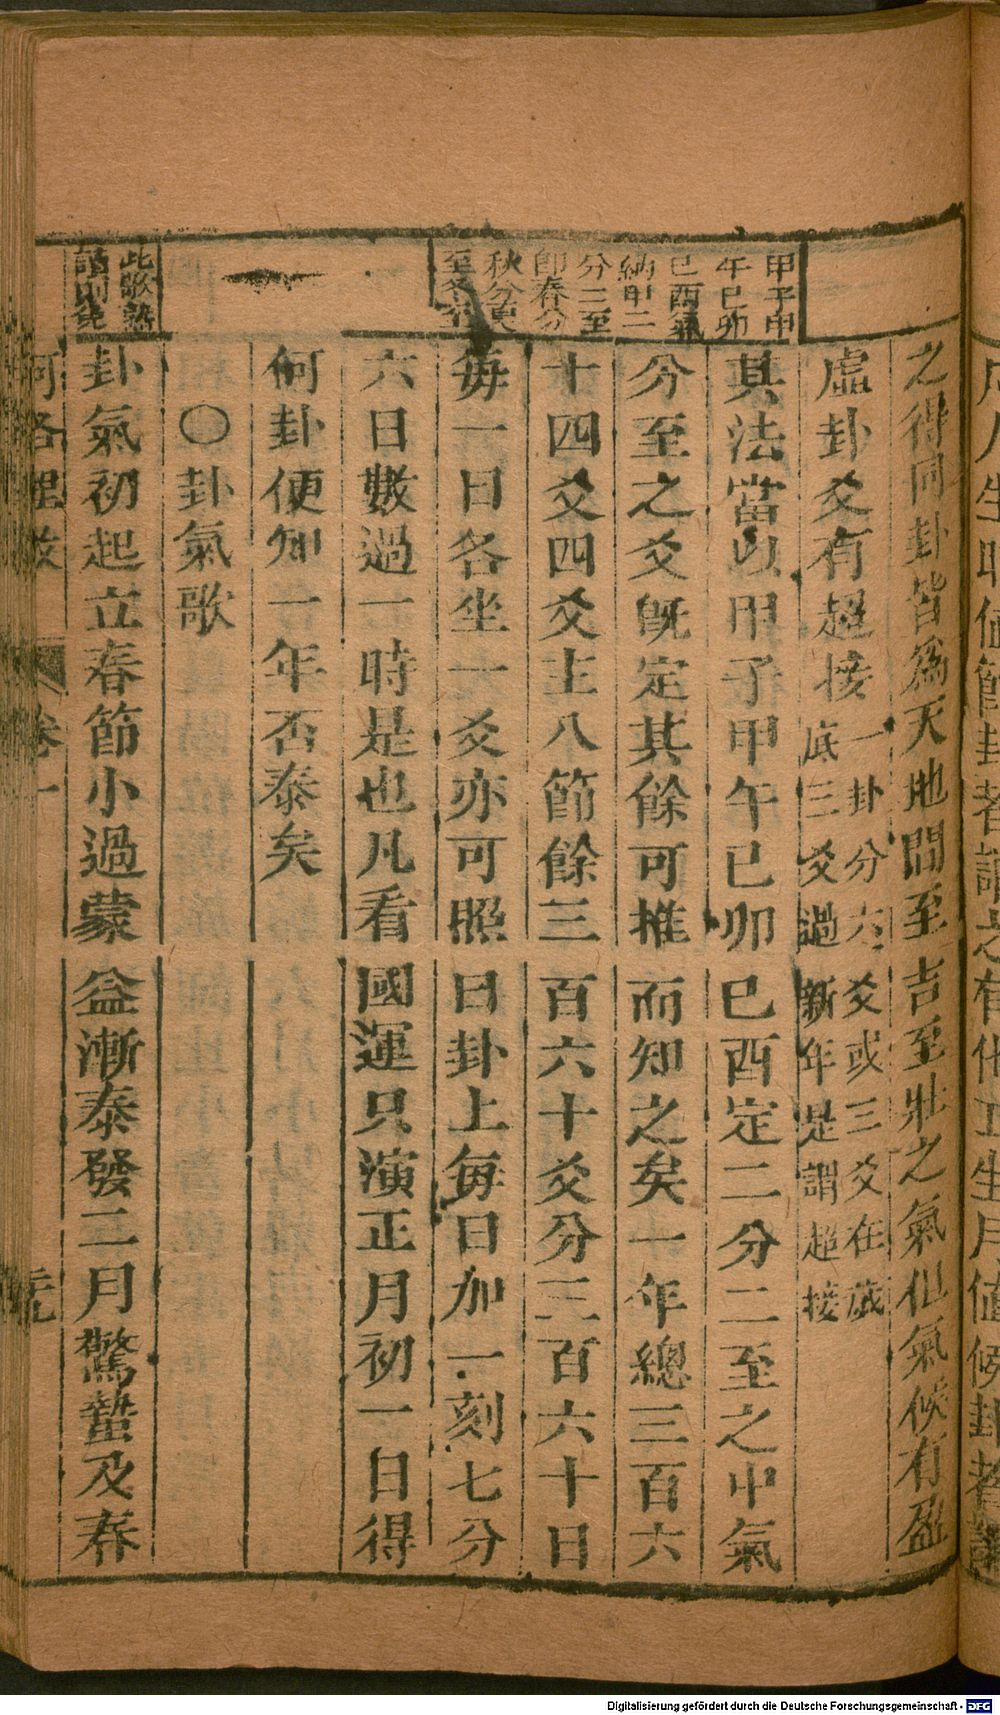 甲子甲
午己卯
己酉氣
納甲二
分二至
卽春分
秋分夏
至冬至
之得同卦皆爲天地間至吉至壯之氣但氣候有盈
虛卦爻有超接
一卦分六爻或三爻在歲
底三爻過新年是謂超接
其法當以甲子甲午己卯己酉定二分二至之中氣
分至之爻旣定其餘可推而知之矣一年總三百六
十四爻四爻主八節餘三百六十爻分三百六十日
每一日各坐一爻亦可照日卦上每日加一刻七分
六日數過一時是也凡看國運只演正月初一日得
何卦便知一年否泰矣
○卦氣歌
此歌熟
讀則是
卦氣初起立春節小過蒙益漸泰發二月驚蟄及春
河洛理數
卷一
Digitalisierung gefördert durch die Deutsche Forschungsgemeinschaft - DFG